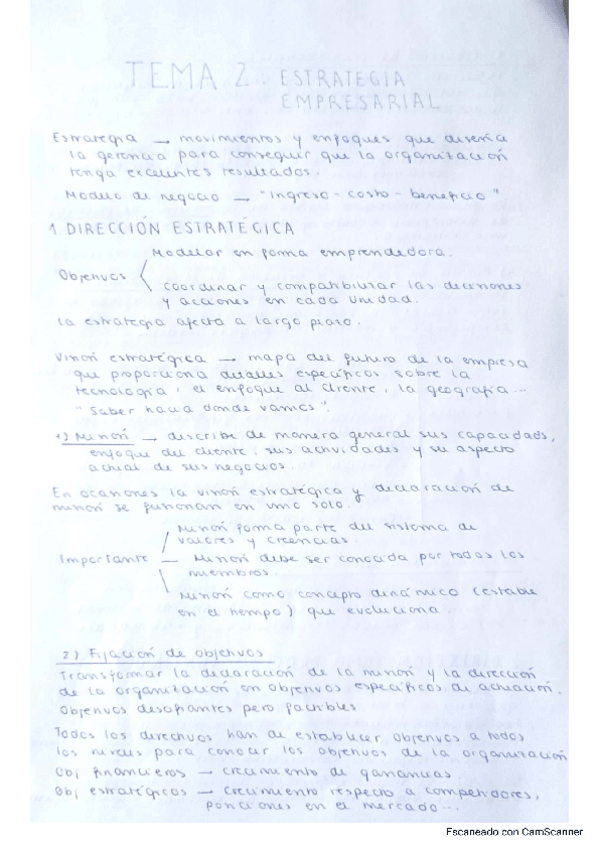 TEMA 2. ESTRATEGIA
EMPRESARIAL
Estrategia → movimientos y enfoques que diseña
la gerencia para conseguir que la organización
tenga excelentes resultados.
Modelo de negocio → "ingreso - costo - beneficio"
1 DIRECCIÓN ESTRATÉGICA
Modelar en forma emprendedora.
Objetivos
coordinar y compatibilizar las decisiones
y acciones en cada unidad.
La estrategia afecta a largo plazo.
Visión estratégica → mapa del futuro de la empresa
que proporciona detalles específicos sobre la
tecnología, el enfoque al cliente, la geografía...
"Saber hacia donde vamos".
1) Misión → describe de manera general sus capacidads,
enfoque del cliente, sus actividades y su aspecto
actual de sus negocios.
En ocasiones la visión estratégica y declaración de
misión se fusionan en uno solo.
Misión forma parte del sistema de
valores y creencias.
Importante — Misión debe ser conocida por todos los
miembros.
Misión como concepto dinámico (estable
en el tiempo) que evoluciona.
2) Fijación de objetivos
Transformar la declaración de la misión y la dirección
de la organización en objetivos específicos de actuación.
Objetivos desafiantes pero factibles
Todos los directivos han de establecer objetivos a todos
los niveles para conocer los objetivos de la organización
Obj financieros → crecimiento de ganancias.
Obj estratégicos → crecimiento respecto a competidores,
posiciones en el mercado...
Escaneado con CamScanner